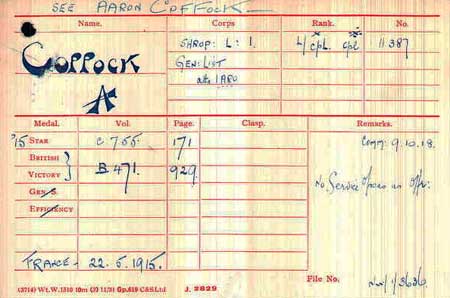 SEE AARON COPPOCK
Name. Corps Rank. No.
COPPOCK
A
SHROP: L: I. L/Cpl. Cpl 11387
GEN: LIST
attd IARO
Medal. Vol. Page. Clasp. Remarks.
'15 STAR C 755 171 Comm: 9.10.18.
BRITISH
VICTORY B 471. 929
GEN. S.
EFFICIENCY
No Service as Offr:
FRANCE - 22.5.1915.
(3714) Wt.W.1510 10m (2) 11/21 Gp.619 C&S.Ltd J. 2829
File No.